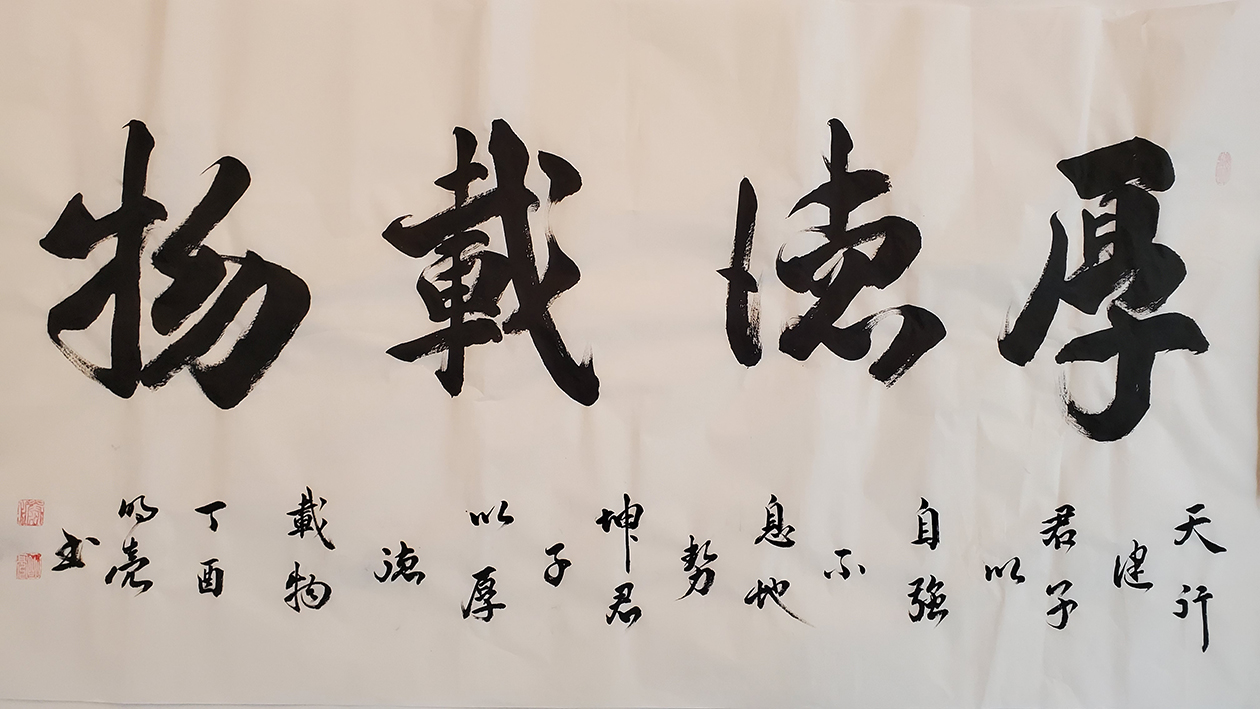 厚德載物
天行
健
君子
以
自強
不
息地
勢
坤君
子
以厚
德
載物
丁酉
明亮
书